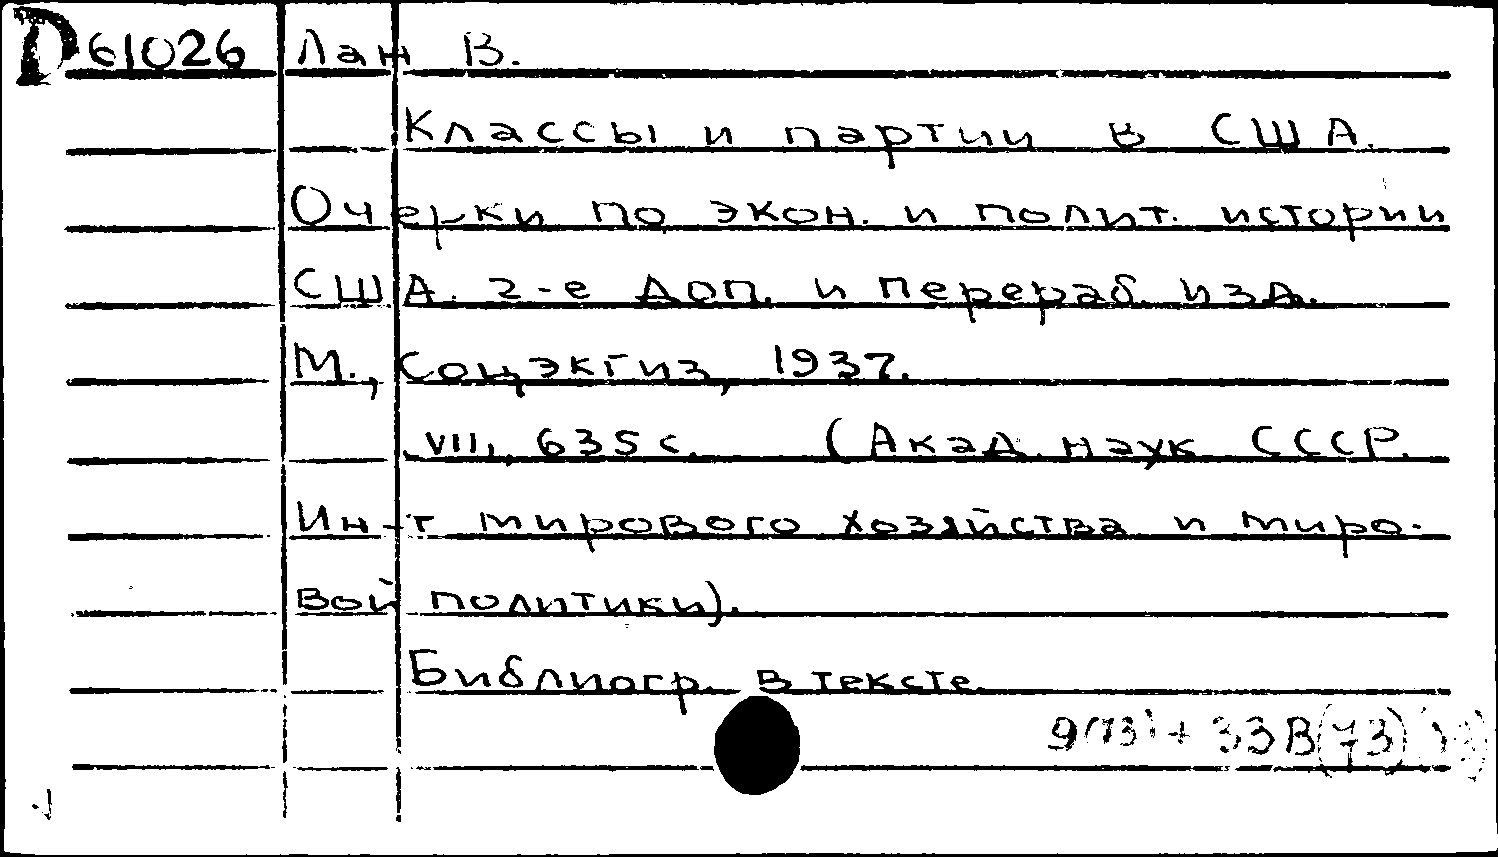 D 61026 Лан В.
Классы и партии в США.
Очерки по экон. и полит. истории
США. 2-е доп. и перераб. изд.
М., Соцэкгиз, 1937.
VII, 635 с. (Акад. наук СССР.
Ин-т мирового хозяйства и миро-
вой политики).
Библиогр. в тексте.
9(73) + 33В(73)